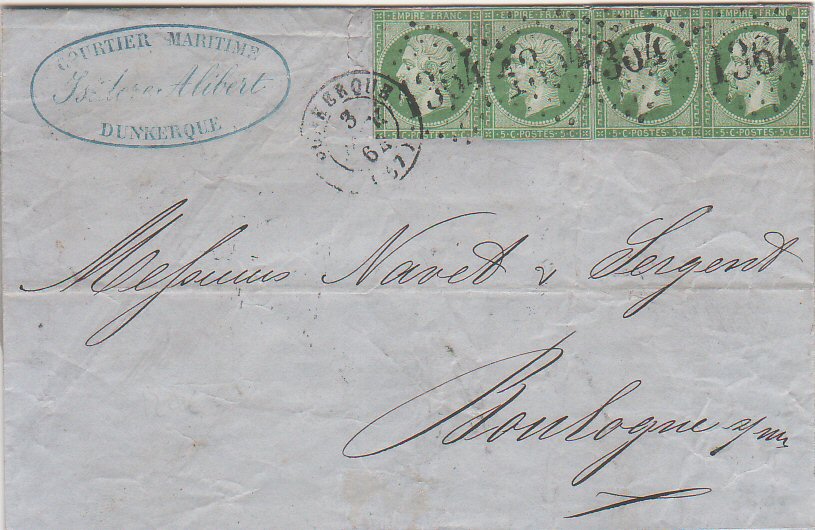 COURTIER MARITIME
Isidore Alibert
DUNKERQUE
EMPIRE FRANC. EMPIRE FRANC. EMPIRE FRANC. EMPIRE FRANC.
1354 1354 1354 1354
5·C·POSTES·5·C· 5·C·POSTES·5·C· 5·C·POSTES·5·C· 5·C·POSTES·5·C·
DUNKERQUE
3
(57)
Messieurs Navet & Sergent
Boulogne s/m